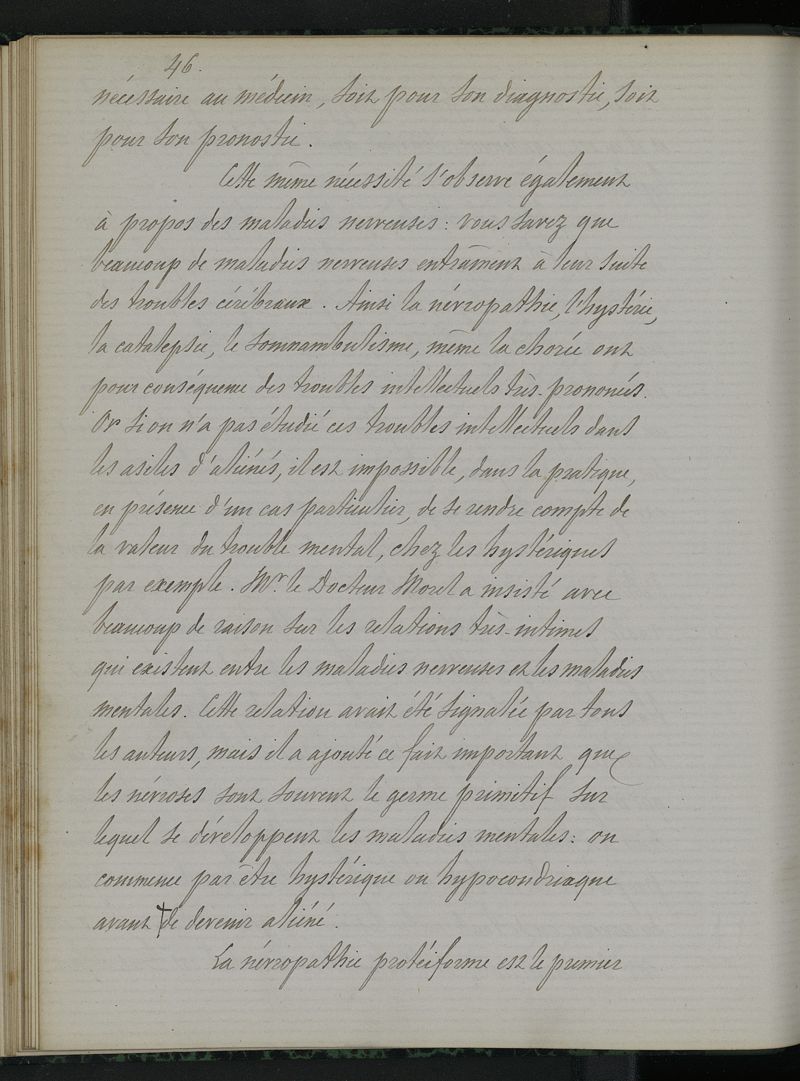 46.
nécessaire au médecin, soit pour son diagnostic, soit
pour son pronostic.
Cette même nécessité s'observe également
à propos des maladies nerveuses : vous savez que
beaucoup de maladies nerveuses entraînent à leur suite
des troubles cérébraux. Ainsi la névropathie, l'hystérie,
la catalepsie, le somnambulisme, même la chorée ont
pour conséquence des troubles intellectuels très-prononcés.
Or si on n'a pas étudié ces troubles intellectuels dans
les asiles d'aliénés, il est impossible, dans la pratique,
en présence d'un cas particulier, de se rendre compte de
la valeur du trouble mental, chez les hystériques
par exemple. Mr. le Docteur Morel a insisté avec
beaucoup de raison sur les relations très-intimes
qui existent entre les maladies nerveuses et les maladies
mentales. Cette relation avait été signalée par tous
les auteurs, mais il a ajouté ce fait important que
les névroses sont souvent le germe primitif sur
lequel se développent les maladies mentales : on
commence par être hystérique ou hypocondriaque
avant de devenir aliéné.
La névropathie protéiforme est le premier